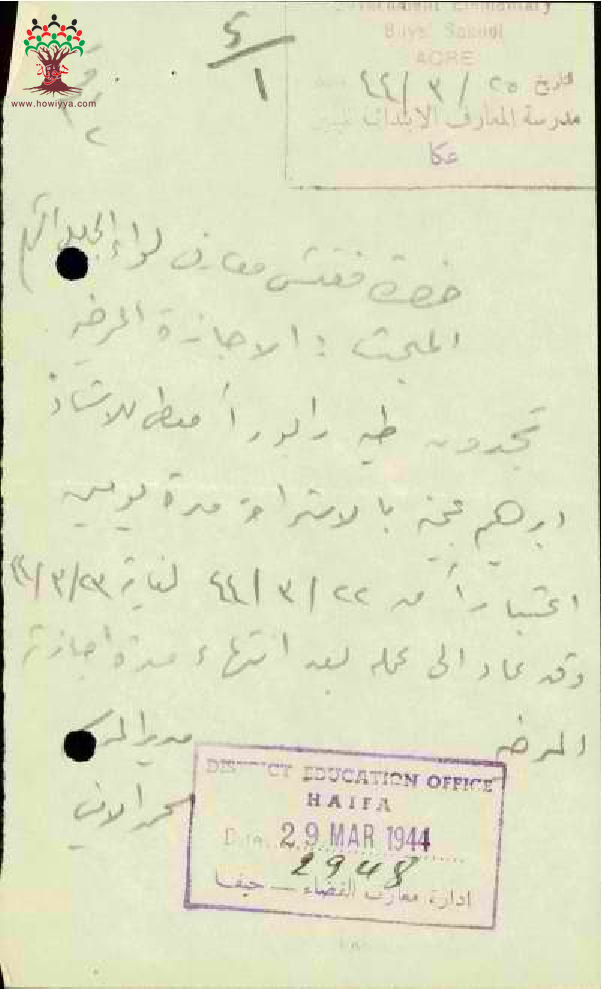 Government Elementary
Boys' School
ACRE
تاريخ ٢٥ / ٣ / ٤٤
مدرسة المعارف الابتدائية للبنين
عكا
٤/١
www.howiyya.com
حضرة مفتش معارف لواء الجليل المحترم
المبحث : الاجازة المرضية
تجدون طيه رابوراً معطى للاستاذ
ابرهيم بالاستراحة مدة يومين
اعتباراً من ٢٢ / ٣ / ٤٤ لغاية ٢٣/٣/٤٤
وقد عاد الى عمله بعد انتهاء مدة اجازته
المرضية
مدير المدرسة
DISTRICT EDUCATION OFFICE
HAIFA
Date 29 MAR 1944
2948
ادارة معارف القضاء — حيفا